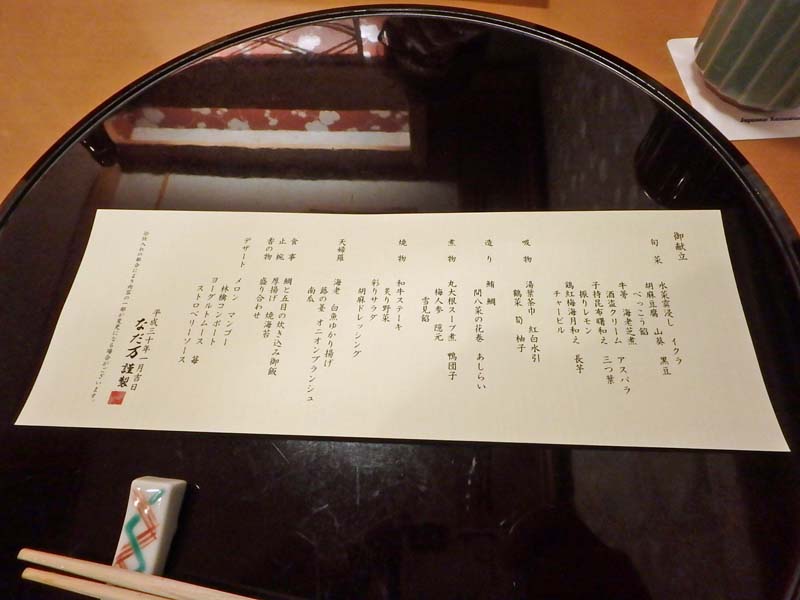 御献立
旬菜
水菜霙浸し イクラ
胡麻豆腐 山葵 黒豆
べっこう餡
牛蒡 海老芝煮 アスパラ
酒盗クリーム 三つ葉
子持昆布曙和え
振りレモン
鶏紅梅海月和え 長芋
チャービル
吸物
湯葉茶巾 紅白水引
鶴菜 筍 柚子
造り
鮪 鯛
間八菜の花巻 あしらい
煮物
丸大根スープ煮 鴨団子
梅人参 隠元
雪見餡
焼物
和牛ステーキ
炙り野菜
彩りサラダ
胡麻ドレッシング
天婦羅
海老 白魚ゆかり揚げ
蕗の薹 オニオンブランシュ
南瓜
食事
鯛と五目の炊き込み御飯
止椀
厚揚げ 焼海苔
香の物
盛り合わせ
デザート
メロン マンゴー 苺
林檎コンポート
ヨーグルトムース
ストロベリーソース
平成三十年一月吉日
なだ万 謹製
※仕入れの都合により内容の一部が変更になる場合がございます。